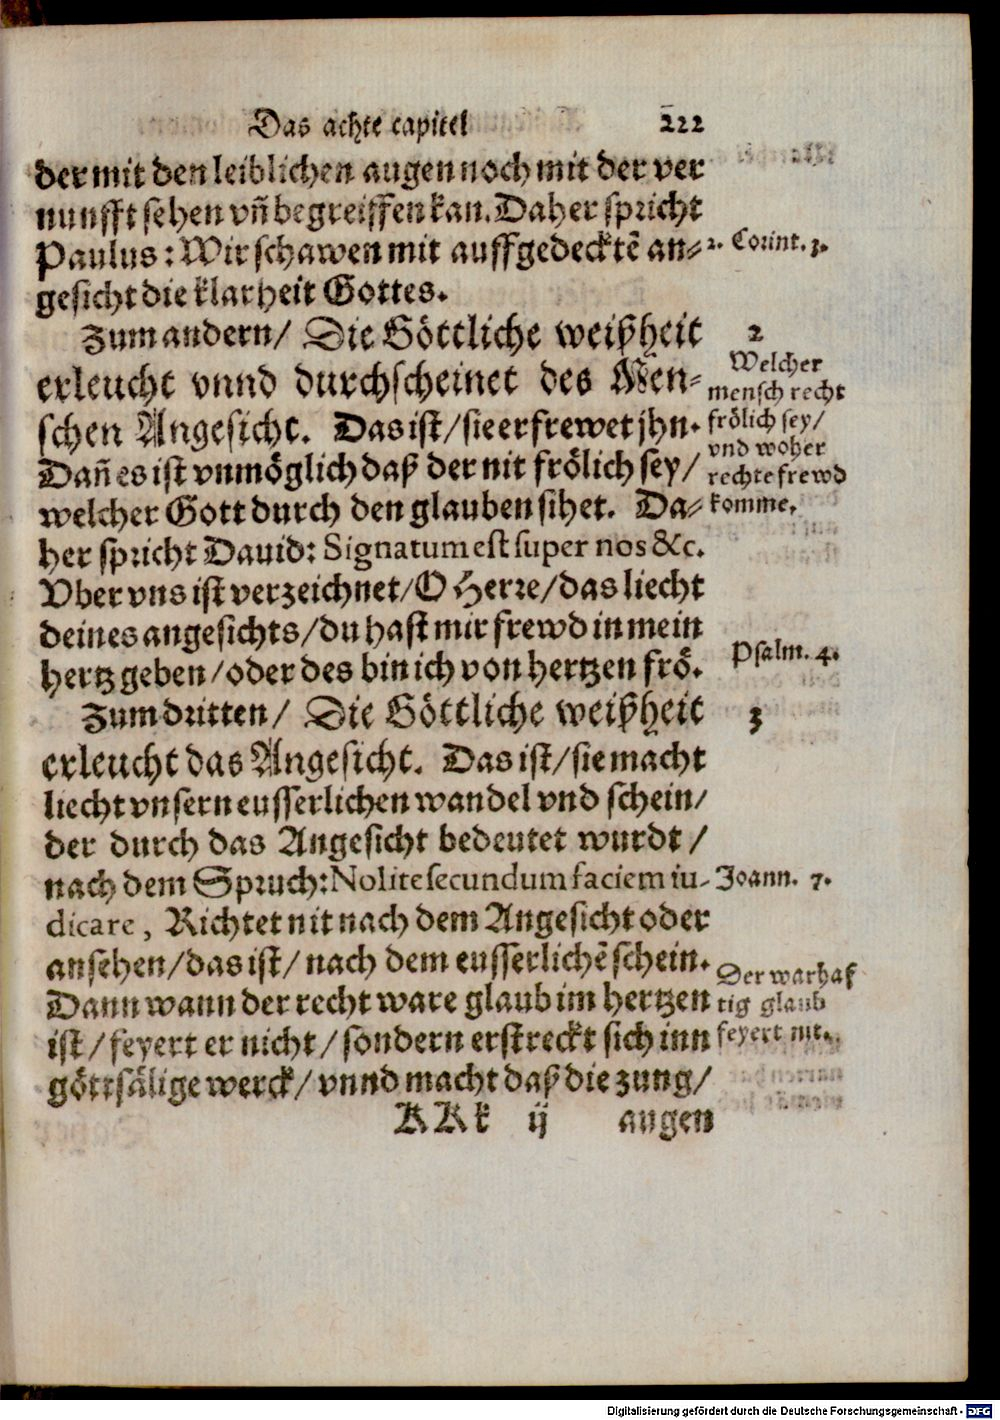 Das achte capitel 222
der mit den leiblichen augen noch mit der ver
nunfft sehen vñ begreiffen kan. Daher spricht
Paulus: Wir schawen mit auffgedecktẽ an-
gesicht die klarheit Gottes.
2. Corint. 3.
Zum andern/ Die Göttliche weißheit
erleucht vnnd durchscheinet des Men-
schen Angesicht. Das ist/ sie erfrewet jhn.
Dañ es ist vnmöglich daß der nit frölich sey/
welcher Gott durch den glauben sihet. Da-
her spricht Dauid: Signatum est super nos &c.
Vber vns ist verzeichnet/ O Herre/ das liecht
deines angesichts/ du hast mir frewd in mein
hertz geben/ oder des bin ich von hertzen frö.
2
Welcher
mensch recht
frölich sey/
vnd woher
rechte frewd
komme.
Psalm. 4.
Zum dritten/ Die Göttliche weißheit
erleucht das Angesicht. Das ist/ sie macht
liecht vnsern eusserlichen wandel vnd schein/
der durch das Angesicht bedeutet wurdt/
nach dem Spruch: Nolite secundum faciem iu-
dicare, Richtet nit nach dem Angesicht oder
ansehen/ das ist/ nach dem eusserlichẽ schein.
Dann wann der recht ware glaub im hertzen
ist/ feyert er nicht/ sondern erstreckt sich inn
göttsälige werck/ vnnd macht daß die zung/
3
Joann. 7.
Der warhaf
tig glaub
feyert nit.
KKk ij augen
Digitalisierung gefördert durch die Deutsche Forschungsgemeinschaft - DFG